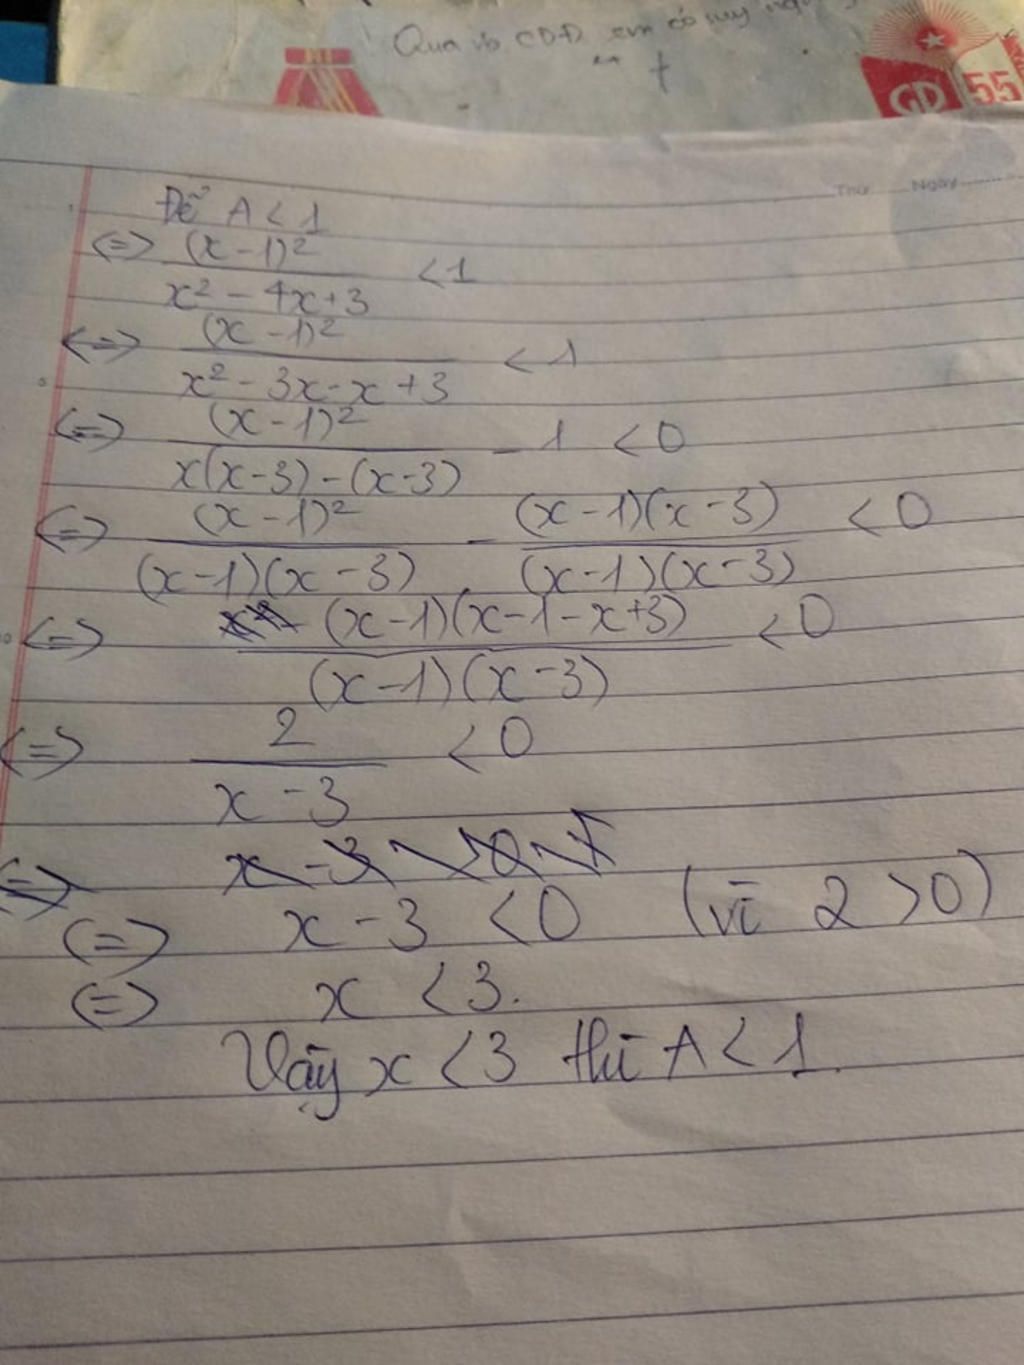 Qua vb CDD em có suy
GD 55
Thứ Ngày
Để A < 1
(=) (x - 1)² / x² - 4x + 3 < 1
(=) (x - 1)² / x² - 3x - x + 3 < 1
(=) (x - 1)² / x(x - 3) - (x - 3) - 1 < 0
(=) (x - 1)² / (x - 1)(x - 3) - (x - 1)(x - 3) / (x - 1)(x - 3) < 0
(=) (x - 1)(x - 1 - x + 3) / (x - 1)(x - 3) < 0
(=) 2 / x - 3 < 0
(=) x - 3 < 0 (vì 2 > 0)
(=) x < 3.
Vậy x < 3 thì A < 1.